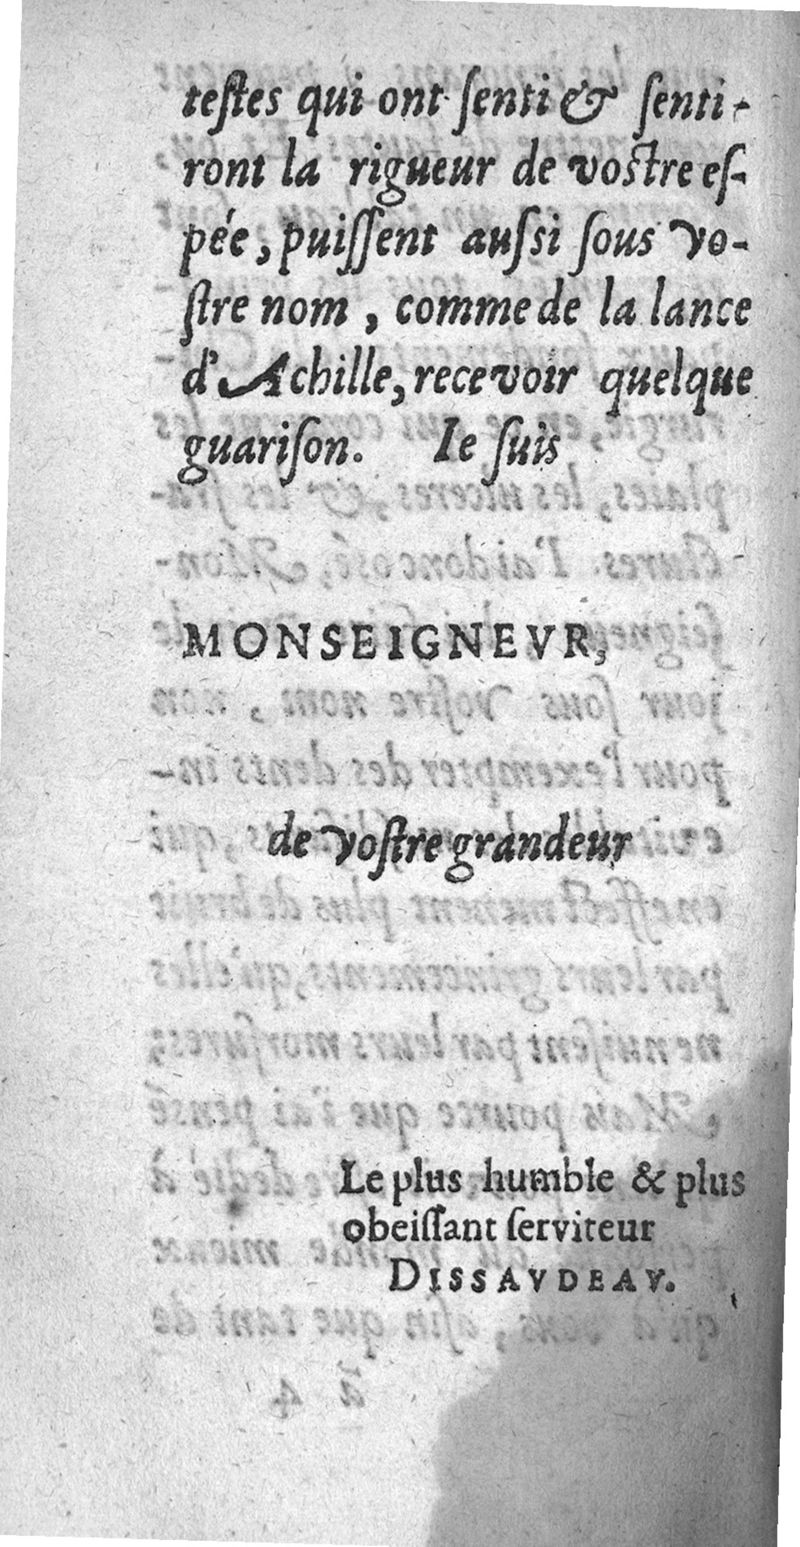 teſtes qui ont ſenti & ſenti-
ront la rigueur de voſtre eſ-
pée, puiſſent auſsi ſous vo-
ſtre nom, comme de la lance
d'Achille, recevoir quelque
guariſon. Ie ſuis
MONSEIGNEVR,
de voſtre grandeur
Le plus humble & plus
obeiſſant ſerviteur
DISSAVDEAV.